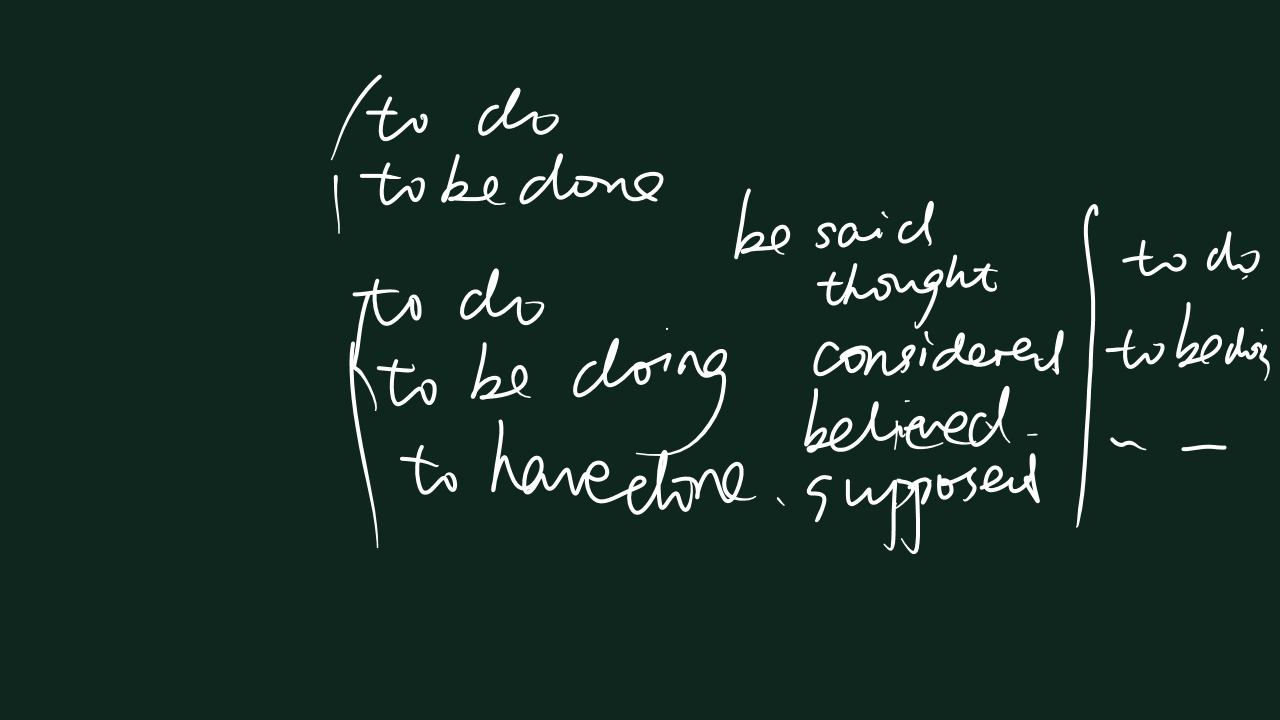 to do
to be done
to do
to be doing
to have done
be said
thought
considered
believed
supposed
to do
to be doing
~ —